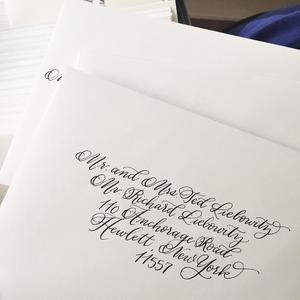 Mr. and Mrs. Ted Liebowitz
Mr. Richard Liebowitz
110 Anchorage Road
Hewlett New York
11557